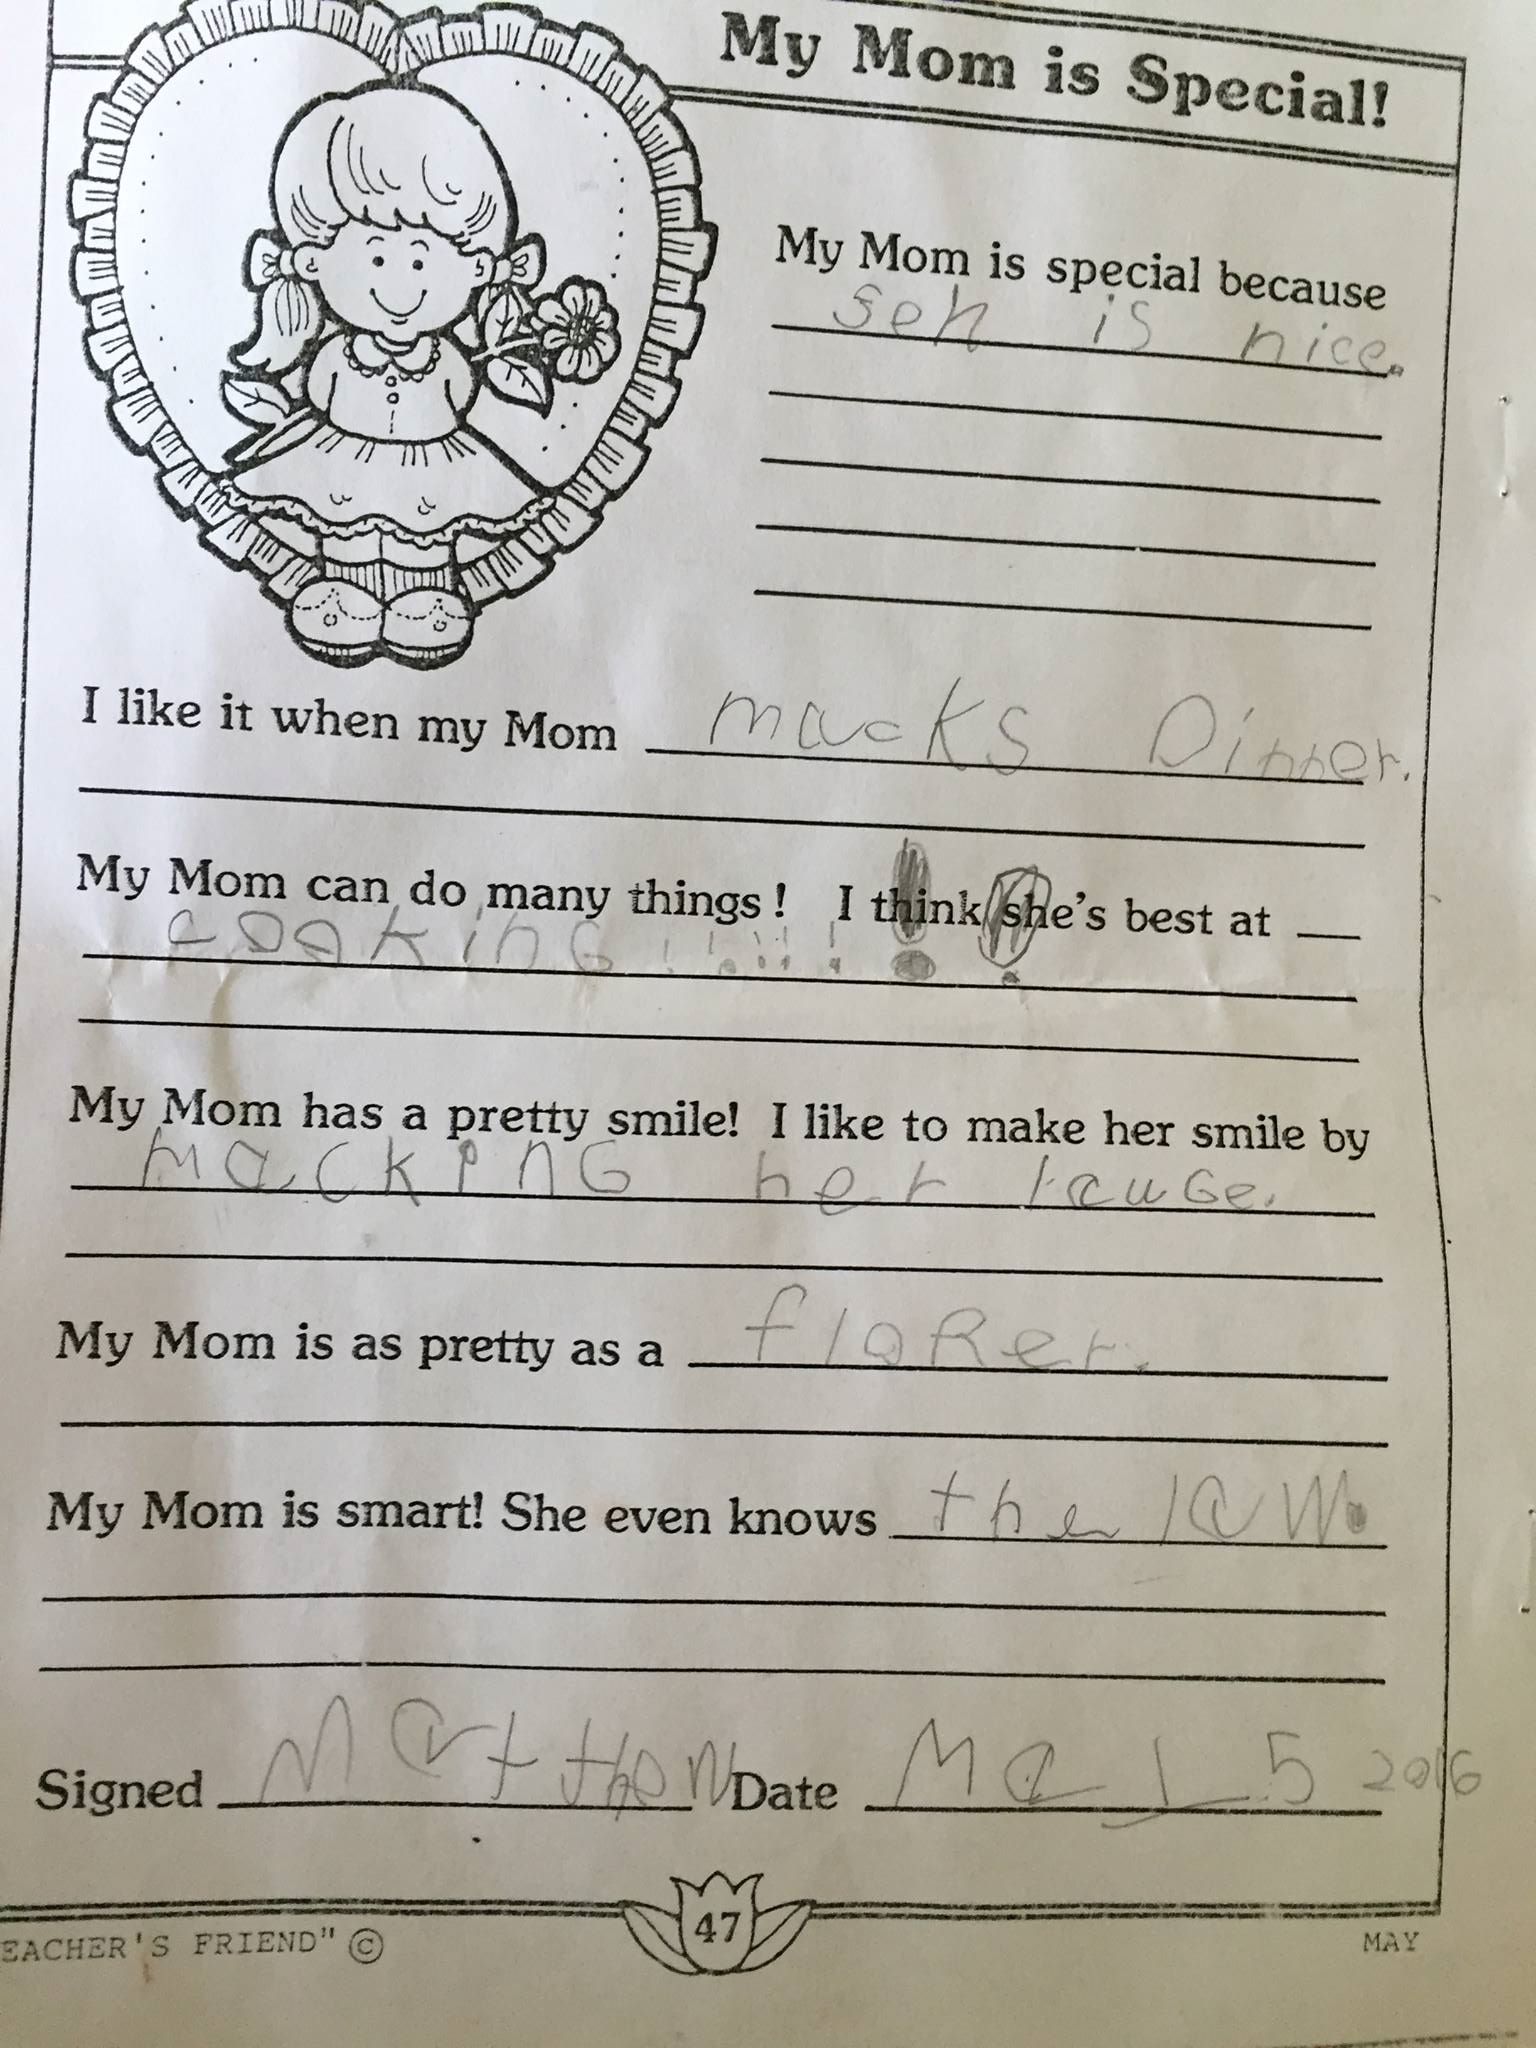 My Mom is Special!
My Mom is special because
seh is nice.
I like it when my Mom macks Dinner.
My Mom can do many things! I think she's best at
cooking!!!!!!!!
My Mom has a pretty smile! I like to make her smile by
mackinG her lauGe.
My Mom is as pretty as a floRer.
My Mom is smart! She even knows the law.
Signed Matthew Date May 5 2016
47
EACHER'S FRIEND" ©
MAY